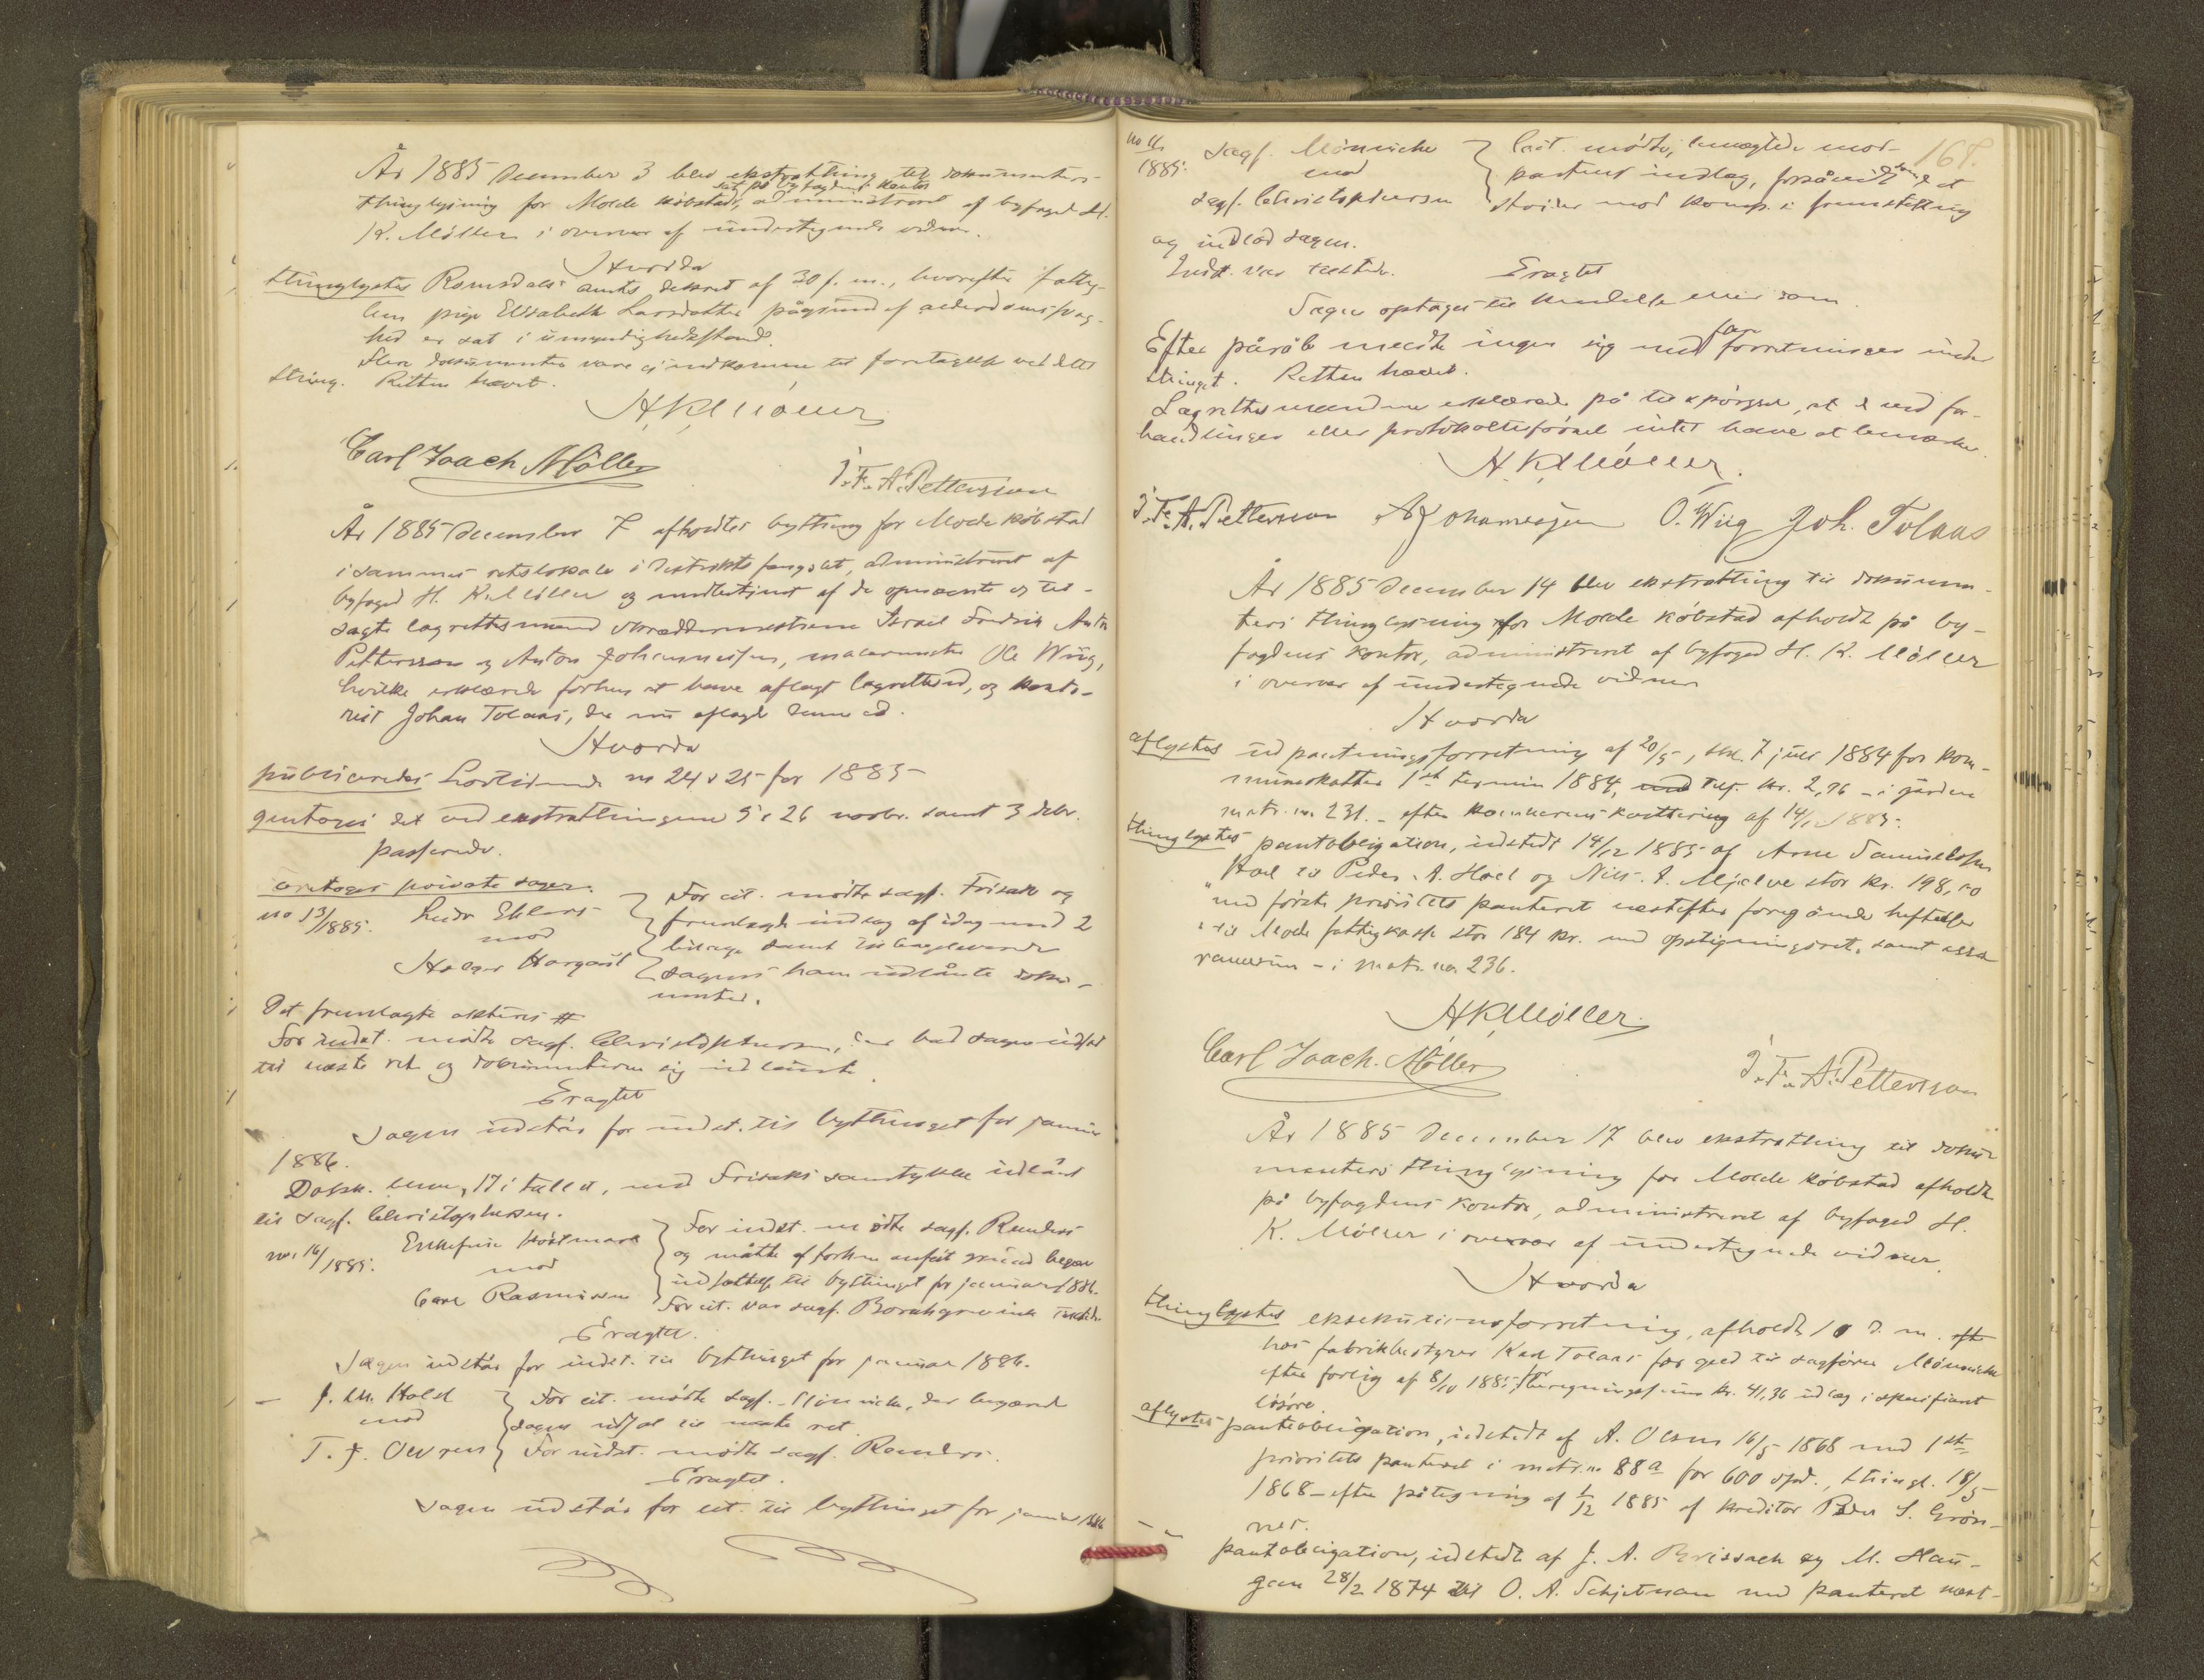 År 1885 December 3 blev ekstrathing til dokumenters
sat på byfogdens kontor
thinglysning for Molde købstad, administreret af byfoged H.
K. Müller i overvær af undertegnede vidner.
Hvorda
thinglystes Romsdals amts dekret af 30 f. m., hvorefter fattig-
lem pige Elisabeth Larsdatter på grund af alderdomssvag-
hed er sat i umyndighedsstand.
Flere dokumenter vare ej indkomne til foretagelse ved dette
thing. Retten hævet.
H.K. Müller
Carl Joach Müller
I.F.A. Petterson
År 1885 December 7 afholdtes bything for Molde købstad
i sammes retslokale i distriktsfængslet, administreret af
byfoged H. K. Müller og meddomt af de opnævnte og til-
sagte lagrettesmænd skræddermestrene Israel Fredrik Anton
Pettersson og Anton Johannessen, malermester Ole Wiig,
hvilke erklærede forhen at have aflagt lagretteed, og konto-
rist Johan Tolaas, der nu aflagde denne ed.
Hvorda
publiceredes Lovtidende no 24 & 25 for 1885
gentoges det ved ekstrathingene 5 & 26 novbr. samt 3 debr.
passerede.
foretoges private sager.
no 13/1885. Ehlers
mod
Holger Hargaut
For cit. mødte sagf. Frisak og
fremlagde indlæg af idag med 2
bilage samt tilbageleverede
sagens ham udlånte doku-
menter.
Det fremlagte akteres #
For indst. mødte sagf. Christophersen, der bad sagen udsat
til næste ret og dokumenterne sig udlånte.
Eragtet
Sagen udstår for indst. til bythinget for januar
1886.
Dokk. bem. 17 i tallet, med Frisaks samtykke udlånt
til sagf. Christophersen.
no. 16/1885. Enkefru Høstmark
mod
Carl Rasmussen
For indst. mødte sagf. Reinders
og måtte af forhen anført grund begære
udsættelse til bythinget for januar 1886.
For cit. var sagf. Borchgrevink tilstede.
Eragtet.
Sagen udstår for indst. til bythinget for januar 1886.
— J. M. Holst
mod
T. J. Oevren
For cit. mødte sagf. Mönniche, der begærede
sagen udsat til næste ret.
For indst. mødte sagf. Reinders.
Eragtet.
Sagen udstår for cit. til bythinget for januar 1886
168.
no 11
1885.
Sagf. Mönniche
mod
sagf. Christophersen
Cit. mødte, benægtede mod-
partens indlæg, forsåvidt samme er
strider mod komp.s fremstilling
og indlod sagen.
Indst. var tilstede.
Eragtet
Sagen optages til kendelse eller dom.
Efter påråb meldte ingen sig med flere forretninger under
thinget. Retten hævet.
Lagrettesmændene erklærede på tilspørgsel, at de ved for-
handlingen eller protokoltilførsel intet have at bemærke.
H.K. Müller.
I.F.A. Petterson A Johannessen O. Wiig Joh. Tolaas
År 1885 December 14 blev ekstrathing til dokumen-
ters thinglysning for Molde købstad afholdt på by-
fogdens kontor, administreret af byfoged H. K. Müller
i overvær af undertegnede vidner
Hvorda
aflystes udpantningsforretning af 20/5, thl. 7 juli 1884 for kom-
muneskatter 1ste termin 1884, tils. kr. 2,96 – i gården
matr. no. 231. – efter kæmnerens kvittering af 14/12 1885.
thinglystes pantobligation, udstedt 14/12 1885 af Arne Samuelssen
Hoel til Peder A. Hoel og Nils A. Mjelve stor kr. 198,00
med første prioritets panteret næstefter foregående heftelse
til Molde fattigkasse stor 184 kr. med opstigningsret, samt assu
rancesum – i matr. no. 236.
H.K. Müller.
Carl Joach. Müller
I.F.A. Petterson
År 1885 December 17 blev ekstrathing til doku-
menters thinglysning for Molde købstad afholdt
på byfogdens kontor, administreret af byfoged H.
K. Müller i overvær af undertegnede vidner.
Hvorda
thinglystes eksekutionsforretning, afholdt 10 d. m.
hos fabrikbestyrer Karl Tolaas for gæld til sagfører Mönniche
efter forlig af 8/10 1885; beregningssum kr. 41,36 udlæg i specificeret
løsøre.
aflystes pantobligation, udstedt af A. Olsen 16/5 1868 med 1ste
prioritets panteret i matr. no 88a for 600 spd., thingl. 18/5
1868 – efter påtegning af 1/12 1885 af kreditor Peder S. Grøn-
nes.
— " pantobligation, udstedt af J. A. Brissach og M. Hau-
gen 28/2 1874 til O. A. Schjetnan med panteret næst-